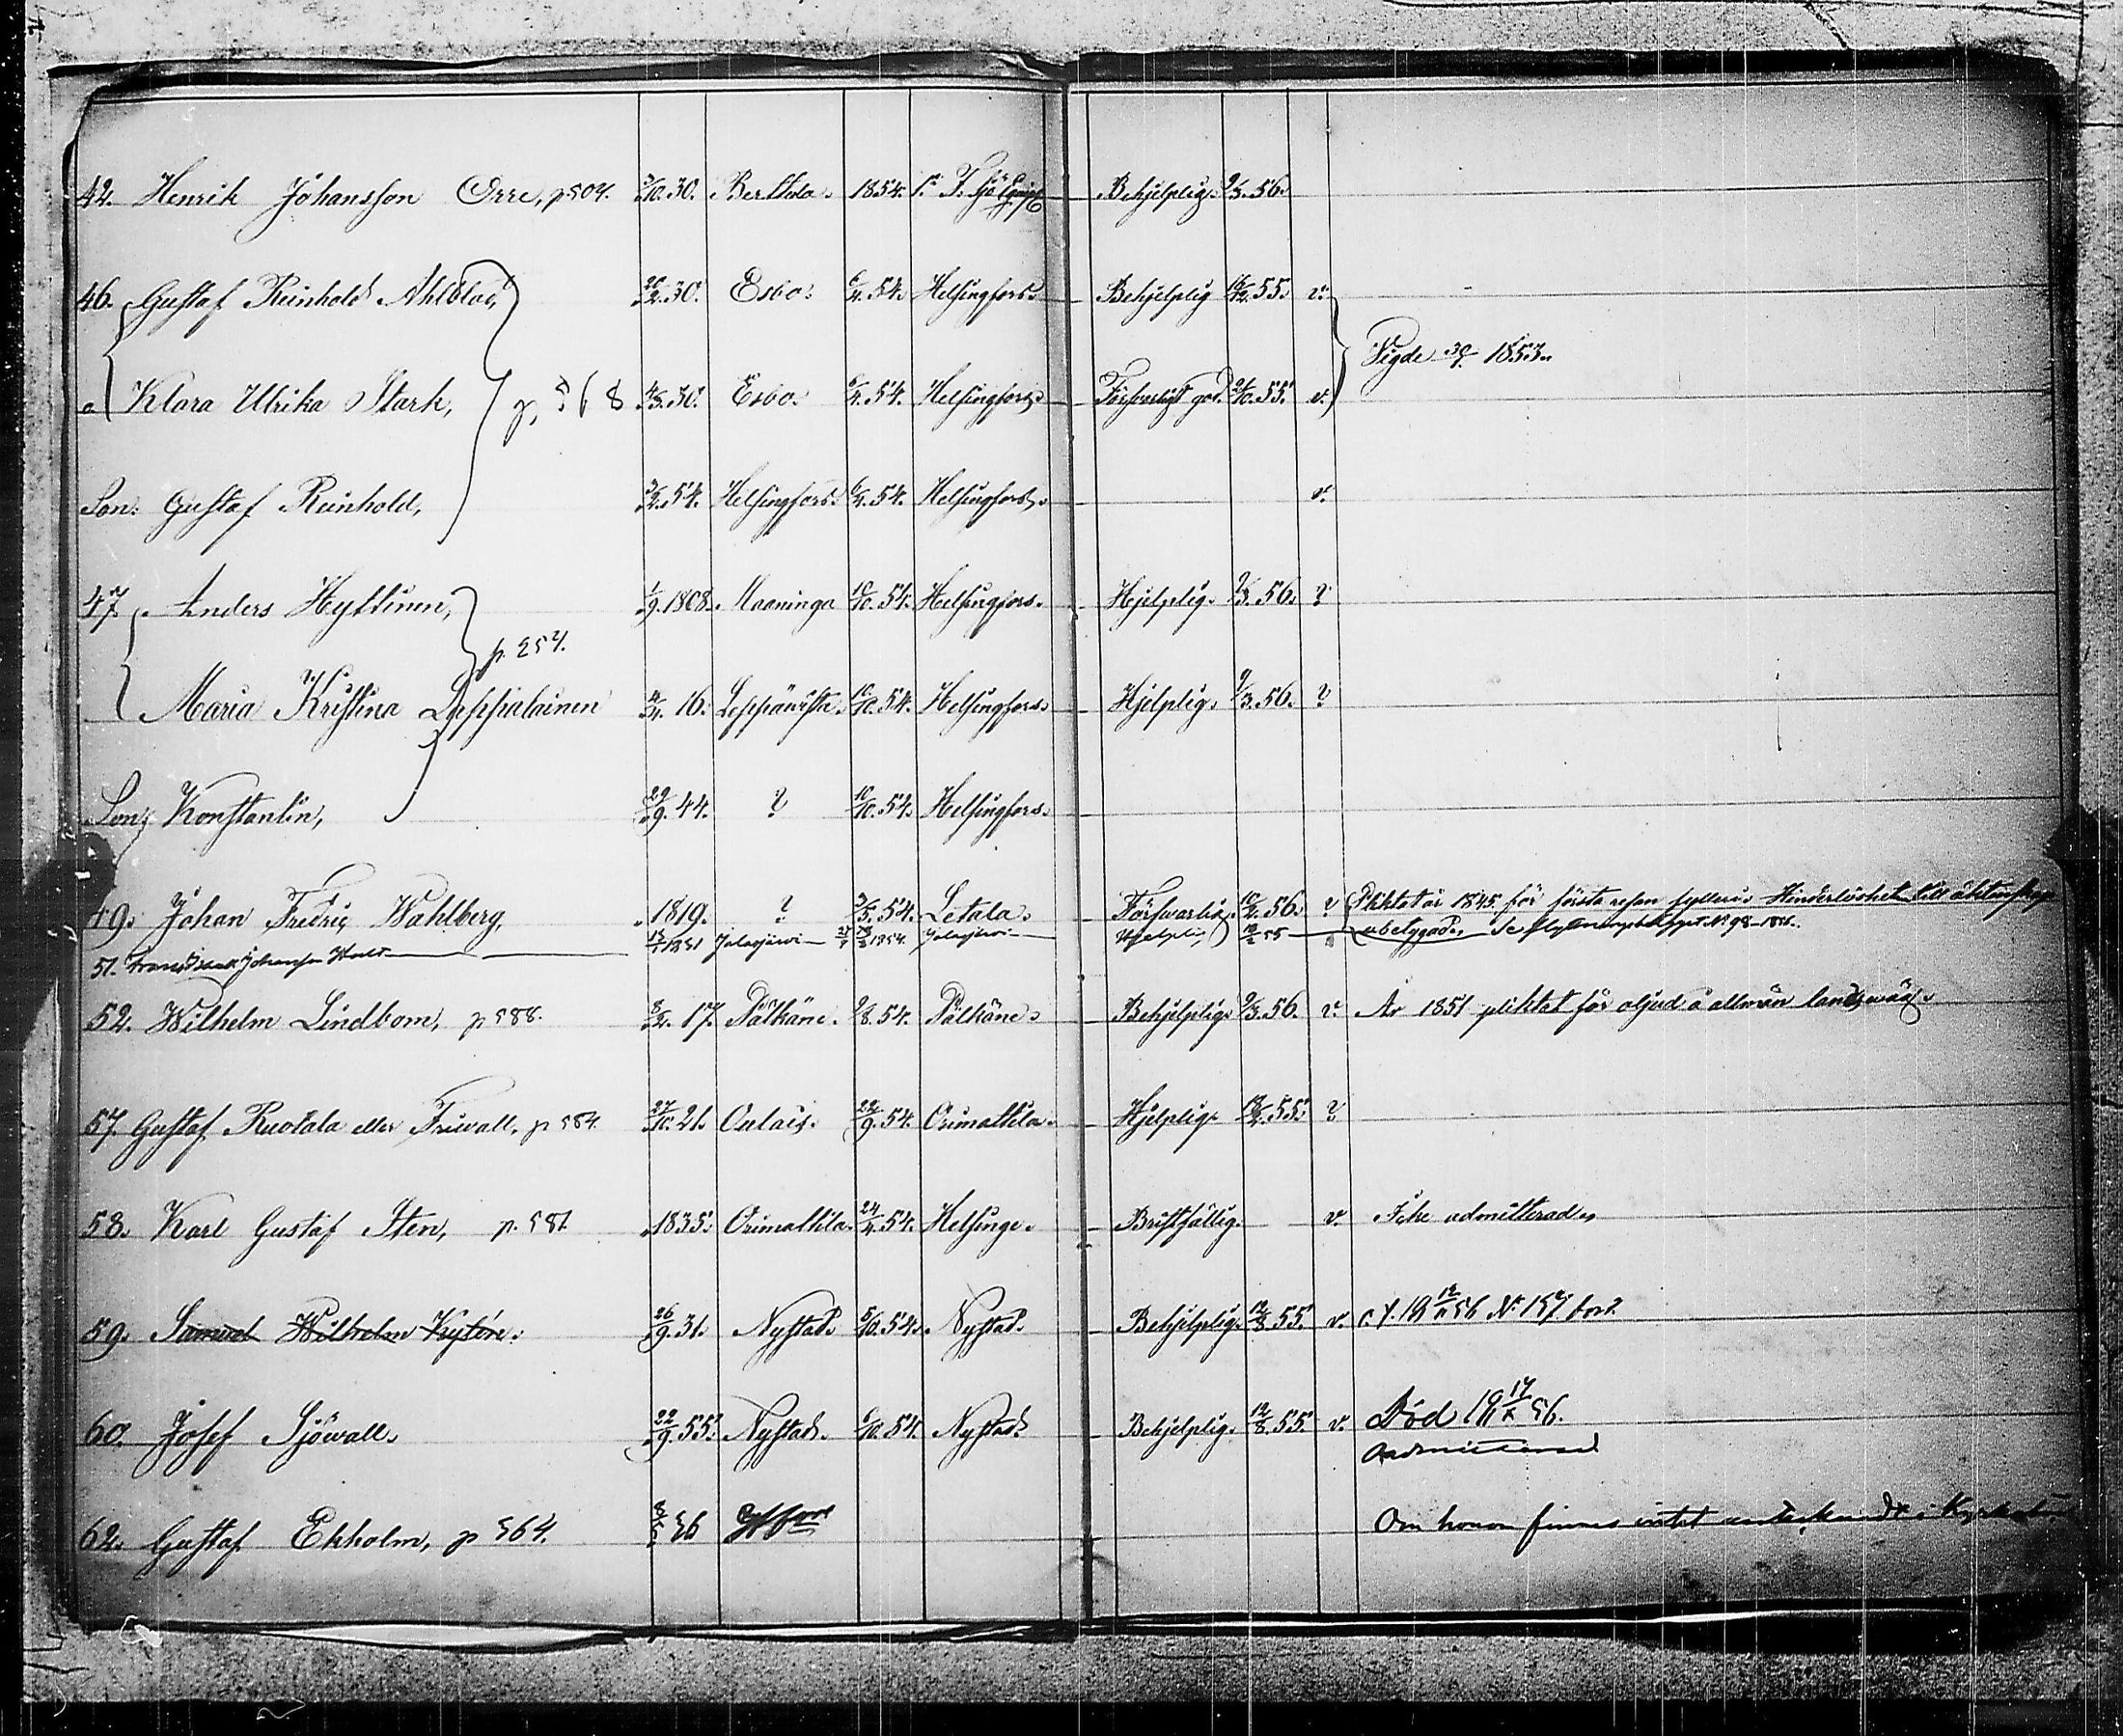 42. Henrik Johansson Orre, p 504. 3/10. 30. 1854. Behjelplig. 9/3. 56.
46. Gustaf Reinhold Ahlblad, 20/2. 30. Esbo. 6/4. 54. Helsingfors. Behjelplig 55. v.
Vigde 30/7 1853.
a Klara Ulrika Stark, p. 568 4/3. 30. Esbo. 6/4. 54. Helsingfors. Försvarligt god. 55. v.
Son: Gustaf Reinhold, 3/2. 54. Helsingfors. 6/4. 54. Helsingfors. v.
47. Anders Hyttinen, 1/9. 1808. Maaninga 10/10. 54. Helsingfors. Hjelplig. 9/3. 56. ?
p. 254.
Maria Kristina Leppialainen 4/4. 16. Leppävirta. 10/10. 54. Helsingfors. Hjelplig. 9/3. 56. ?
Son: Konstantin, 29/9. 44. ? 10/10. 54. Helsingfors.
49. Johan Fredric Wahlberg, 1819. ? 3/3. 54. Letala. Försvarlig. 10/2. 56. ? Pliktat år 1845 för första resan fylleri. Hinderlöshet till äktenskap
51. Johansson 1831 Jalasjärvi 1854. Jalasjärvi Hjelplig 55 obetygad. Se flyttningsbetyget No 98-1856.
52. Wilhelm Lindbom, p 588. 3/2. 17. Pälkäne. 9/8. 54. Pälkäne. Behjelplig. 9/3. 56. v. År 1851 pliktat för oljud å allmän landsväg.
57. Gustaf Ruotala eller Friwall, p 584. 27/10. 21. 22/9. 54. Orimattila. Hjelplig. 55. ?
58. Karl Gustaf Sten, p. 581 1835. Orimattila. 24/4. 54. Helsinge. Bristfällig. v. Icke admitterad.
59. Samuel Wilhelm Kytén. 26/9. 31. Nystad. 5/10. 54. Nystad. Behjelplig. 12/8. 55. v. 56 No 157 bort.
60. Josef Sjöwall. 22/9. 55. Nystad. 5/10. 54. Nystad. Behjelplig. 12/8. 55. v. Död 18 17/X 56.
Admitterad
62. Gustaf Ekholm, p 564. 8/5 36 Om honom finnes intet antecknadt i Kyrkob.